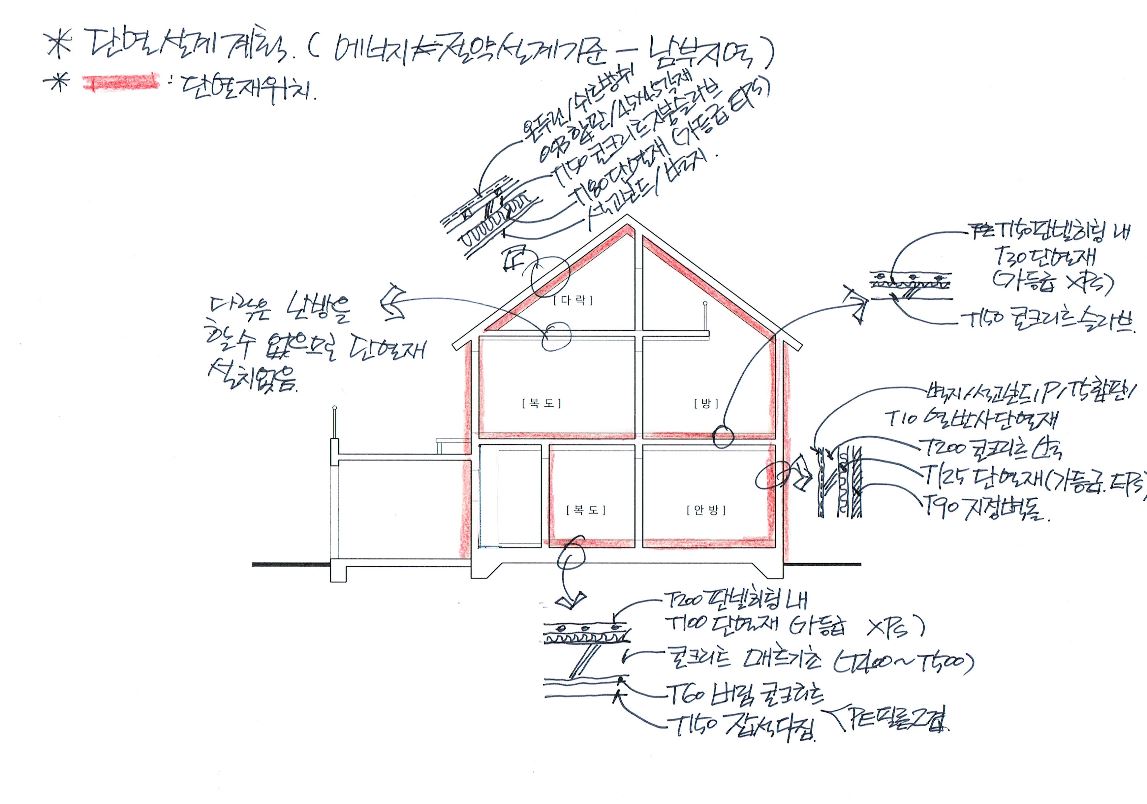 * 단열설계계획. ( 에너지절약설계기준 - 남부지역 )
* : 단열재위치.
온두린/쉬트방수
OSB 합판/45x45각재
T150 콘크리트지붕슬라브
T180 단열재 (가등급 EPS)
석고보드/벽지.
[ 다 락 ]
다락은 난방을
할 수 없으므로 단열재
설치없음.
T150 판넬히팅 내
T30 단열재
(가등급 XPS)
T150 콘크리트슬라브.
[ 복 도 ]
[ 방 ]
벽지/석고보드1P/T5합판/
T10 열반사단열재
T200 콘크리트
T125 단열재(가등급.EPS)
T90 치장벽돌.
[ 복 도 ]
[ 안 방 ]
T200 판넬히팅 내
T100 단열재 (가등급 XPS)
콘크리트 매트기초 (T400~T500)
T60 버림 콘크리트
T150 잡석다짐.
PE필름2겹.